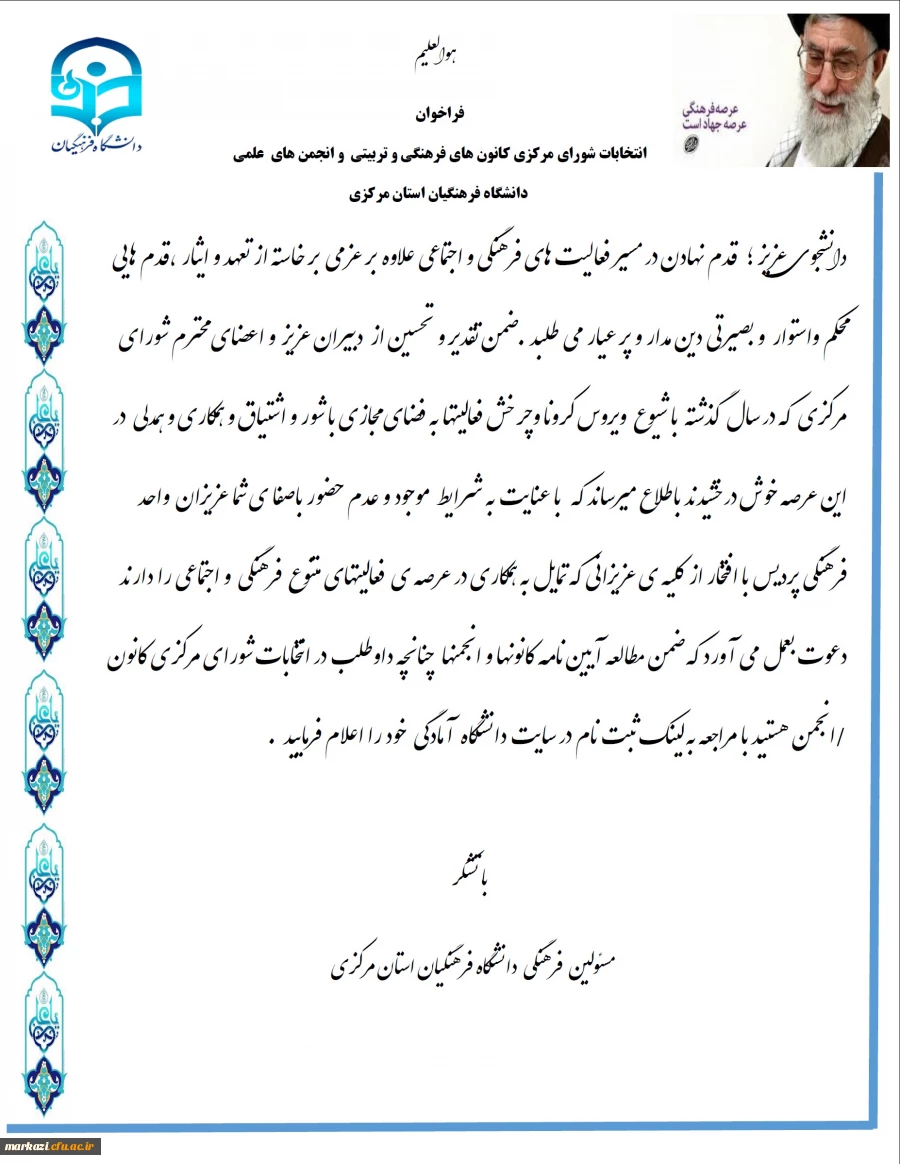 هوالعلیم
دانشگاه فرهنگیان
عرصه فرهنگی
عرصه جهاد است
فراخوان
انتخابات شورای مرکزی کانون های فرهنگی و تربیتی و انجمن های علمی
دانشگاه فرهنگیان استان مرکزی
دانشجوی عزیز ؛ قدم نهادن در مسیر فعالیت های فرهنگی و اجتماعی علاوه بر عزمی بر خاسته از تعهد و ایثار ،قدم هایی
محکم واستوار و بصیرتی دین مدار و پر عیار می طلبد .ضمن تقدیر و تحسین از دبیران عزیز و اعضای محترم شورای
مرکزی که در سال گذشته با شیوع ویروس کرونا وچرخش فعالیتها به فضای مجازی با شور و اشتیاق و همکاری و همدلی در
این عرصه خوش درخشیدند باطلاع میرساند که با عنایت به شرایط موجود و عدم حضور باصفای شما عزیزان واحد
فرهنگی پردیس با افتخار از کلیه ی عزیزانی که تمایل به همکاری در عرصه ی فعالیتهای متنوع فرهنگی و اجتماعی را دارند
دعوت بعمل می آورد که ضمن مطالعه آیین نامه کانونها و انجمنها چنانچه داوطلب در انتخابات شورای مرکزی کانون
/انجمن هستید با مراجعه به لینک ثبت نام در سایت دانشگاه آمادگی خود را اعلام فرمایید .
با تشکر
مسؤلین فرهنگی دانشگاه فرهنگیان استان مرکزی
markazi.cfu.ac.ir